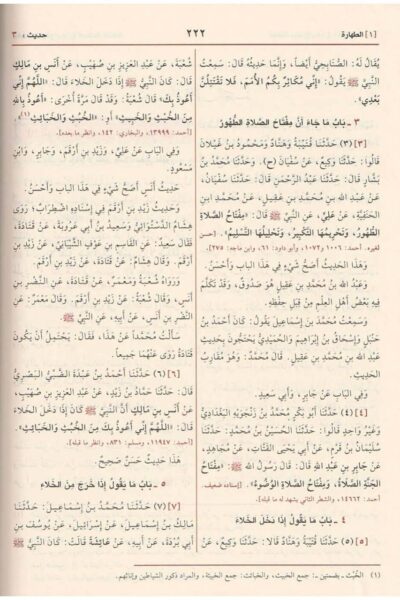 [١] الطهارة
٢٢٢
حديث: ٣
يُقَالُ لَهُ: الصُّنَابِحِيُّ أَيْضاً، وَإِنَّمَا حَدِيثُهُ قَالَ: سَمِعْتُ
النَّبِيَّ ﷺ يَقُولُ: «إِنِّي مُكَاثِرٌ بِكُمُ الأُمَمَ، فَلَا تَقْتَتِلُنَّ
بَعْدِي».
٣ - بَابُ مَا جَاءَ أَنَّ مِفْتَاحَ الصَّلَاةِ الطُّهُورُ
[٣] (٣) حَدَّثَنَا قُتَيْبَةُ وَهَنَّادٌ وَمَحْمُودُ بْنُ غَيْلَانَ
قَالُوا: حَدَّثَنَا وَكِيعٌ، عَنْ سُفْيَانَ (ح). وَحَدَّثَنَا مُحَمَّدُ بْنُ
بَشَّارٍ قَالَ: حَدَّثَنَا عَبْدُ الرَّحْمَنِ قَالَ: حَدَّثَنَا سُفْيَانُ،
عَنْ عَبْدِ اللهِ بْنِ مُحَمَّدِ بْنِ عَقِيلٍ، عَنْ مُحَمَّدِ ابْنِ
الحَنَفِيَّةِ، عَنْ عَلِيٍّ، عَنِ النَّبِيِّ ﷺ قَالَ: «مِفْتَاحُ الصَّلَاةِ
الطُّهُورُ، وَتَحْرِيمُهَا التَّكْبِيرُ، وَتَحْلِيلُهَا التَّسْلِيمُ». [حسن
لغيره. أحمد: ١٠٠٦ و١٠٧٢، وأبو داود: ٦١، وابن ماجه: ٢٧٥].
وَهَذَا الحَدِيثُ أَصَحُّ شَيْءٍ فِي هَذَا البَابِ وَأَحْسَنُ.
وَعَبْدُ اللهِ بْنُ مُحَمَّدِ بْنِ عَقِيلٍ هُوَ صَدُوقٌ، وَقَدْ تَكَلَّمَ
فِيهِ بَعْضُ أَهْلِ العِلْمِ مِنْ قِبَلِ حِفْظِهِ.
وَسَمِعْتُ مُحَمَّدَ بْنَ إِسْمَاعِيلَ يَقُولُ: كَانَ أَحْمَدُ بْنُ
حَنْبَلٍ وَإِسْحَاقُ بْنُ إِبْرَاهِيمَ وَالحُمَيْدِيُّ يَحْتَجُّونَ بِحَدِيثِ
عَبْدِ اللهِ بْنِ مُحَمَّدِ بْنِ عَقِيلٍ. قَالَ مُحَمَّدٌ: وَهُوَ مُقَارِبُ
الحَدِيثِ.
وَفِي البَابِ عَنْ جَابِرٍ، وَأَبِي سَعِيدٍ.
[٤] (٤) حَدَّثَنَا أَبُو بَكْرٍ مُحَمَّدُ بْنُ زَنْجَوَيْهِ البَغْدَادِيُّ
وَغَيْرُ وَاحِدٍ قَالُوا: حَدَّثَنَا الحُسَيْنُ بْنُ مُحَمَّدٍ: حَدَّثَنَا
سُلَيْمَانُ بْنُ قَرْمٍ، عَنْ أَبِي يَحْيَى القَتَّاتِ، عَنْ مُجَاهِدٍ،
عَنْ جَابِرِ بْنِ عَبْدِ اللهِ قَالَ: قَالَ رَسُولُ اللهِ ﷺ: «مِفْتَاحُ
الجَنَّةِ الصَّلَاةُ، وَمِفْتَاحُ الصَّلَاةِ الوُضُوءُ». [إسناده ضعيف.
أحمد: ١٤٦٦٢، والشطر الثاني يشهد له ما قبله].
٤ - بَابُ مَا يَقُولُ إِذَا دَخَلَ الخَلَاءَ
[٥] (٥) حَدَّثَنَا قُتَيْبَةُ وَهَنَّادٌ قَالَا: حَدَّثَنَا وَكِيعٌ، عَنْ
شُعْبَةَ، عَنْ عَبْدِ العَزِيزِ بْنِ صُهَيْبٍ، عَنْ أَنَسِ بْنِ مَالِكٍ
قَالَ: كَانَ النَّبِيُّ ﷺ إِذَا دَخَلَ الخَلَاءَ قَالَ: «اللَّهُمَّ إِنِّي
أَعُوذُ بِكَ» قَالَ شُعْبَةُ: وَقَدْ قَالَ مَرَّةً أُخْرَى: «أَعُوذُ بِاللهِ
مِنَ الخُبُثِ وَالخَبِيثِ» أَوِ: «الخُبُثِ وَالخَبَائِثِ»(١).
[أحمد: ١٣٩٩٩، والبخاري: ١٤٢، وانظر ما بعده].
وَفِي البَابِ عَنْ عَلِيٍّ، وَزَيْدِ بْنِ أَرْقَمَ، وَجَابِرٍ، وَابْنِ
مَسْعُودٍ.
حَدِيثُ أَنَسٍ أَصَحُّ شَيْءٍ فِي هَذَا البَابِ وَأَحْسَنُ.
وَحَدِيثُ زَيْدِ بْنِ أَرْقَمَ فِي إِسْنَادِهِ اضْطِرَابٌ؛ رَوَى
هِشَامٌ الدَّسْتُوَائِيُّ وَسَعِيدُ بْنُ أَبِي عَرُوبَةَ، عَنْ قَتَادَةَ،
فَقَالَ سَعِيدٌ: عَنِ القَاسِمِ بْنِ عَوْفٍ الشَّيْبَانِيِّ، عَنْ زَيْدِ بْنِ
أَرْقَمَ. وَقَالَ هِشَامٌ: عَنْ قَتَادَةَ، عَنْ زَيْدِ بْنِ أَرْقَمَ.
وَرَوَاهُ شُعْبَةُ وَمَعْمَرٌ، عَنْ قَتَادَةَ، عَنِ النَّضْرِ بْنِ
أَنَسٍ، وَقَالَ شُعْبَةُ: عَنْ زَيْدِ بْنِ أَرْقَمَ. وَقَالَ مَعْمَرٌ: عَنِ
النَّضْرِ بْنِ أَنَسٍ، عَنْ أَبِيهِ، عَنِ النَّبِيِّ ﷺ.
سَأَلْتُ مُحَمَّداً عَنْ هَذَا، فَقَالَ: يَحْتَمِلُ أَنْ يَكُونَ
قَتَادَةُ رَوَى عَنْهُمَا جَمِيعاً.
[٦] (٦) حَدَّثَنَا أَحْمَدُ بْنُ عَبْدَةَ الضَّبِّيُّ البَصْرِيُّ
قَالَ: حَدَّثَنَا حَمَّادُ بْنُ زَيْدٍ، عَنْ عَبْدِ العَزِيزِ بْنِ صُهَيْبٍ،
عَنْ أَنَسِ بْنِ مَالِكٍ أَنَّ النَّبِيَّ ﷺ كَانَ إِذَا دَخَلَ الخَلَاءَ
قَالَ: «اللَّهُمَّ إِنِّي أَعُوذُ بِكَ مِنَ الخُبُثِ وَالخَبَائِثِ».
[أحمد: ١١٩٤٧، ومسلم: ٨٣١، وانظر ما قبله].
هَذَا حَدِيثٌ حَسَنٌ صَحِيحٌ.
٥ - بَابُ مَا يَقُولُ إِذَا خَرَجَ مِنَ الخَلَاءِ
[٧] (٧) حَدَّثَنَا مُحَمَّدُ بْنُ إِسْمَاعِيلَ: حَدَّثَنَا
مَالِكُ بْنُ إِسْمَاعِيلَ، عَنْ إِسْرَائِيلَ، عَنْ يُوسُفَ بْنِ
أَبِي بُرْدَةَ، عَنْ أَبِيهِ، عَنْ عَائِشَةَ قَالَتْ: كَانَ النَّبِيُّ ﷺ
(١) الخُبُث - بضمتين -: جمع الخبيث، والخبائث: جمع الخبيثة، والمراد ذكور الشياطين وإناثهم.